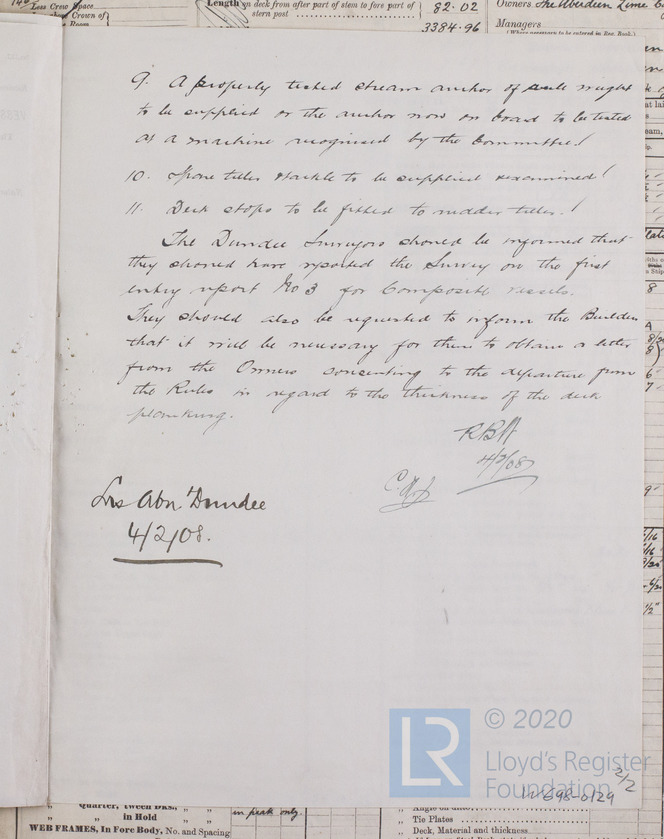 Less Crew Space
above Crown of
Room
Length on deck from after part of stem to fore part of
stern post
82.02
3384.96
Owners The Aberdeen Lime Co
Managers
(Where necessary to be entered in Reg. Book.)
9. A properly tested stream anchor of rule weight
to be supplied or the anchor now on board to be tested
at a machine recognised by the Committee!
10. Spare tiller & tackle to be supplied & examined!
11. Deck stops to be fitted to rudder tiller.!
The Dundee Surveyors should be informed that
they should have reported the Survey on the first
entry report No 3 for Composite vessels.
They should also be requested to inform the Builders
that it will be necessary for them to obtain a letter
from the Owners consenting to the departure from
the Rules in regard to the thickness of the deck
planking.
4/2/08
Lrs Abn. Dundee
4/2/08.
LR
© 2020
Lloyd's Register
Foundation
2/2
0129
Quarter, 'tween Dks., " "
" in Hold " "
in peak only.
WEB FRAMES, In Fore Body, No. and Spacing
" Tie Plates
" Deck, Material and thickness